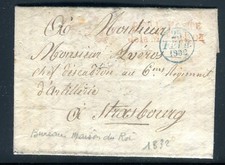 À Monsieur
Monsieur
chef d'escadron au 6me Régiment
d'Artillerie
à Strasbourg
FEVR
1832
Bureau Maison du Roi
1832